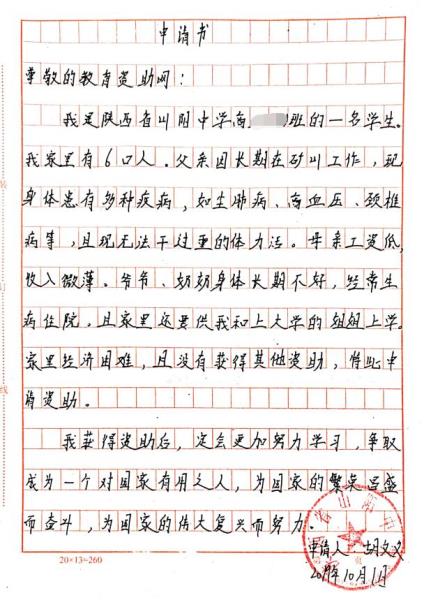 申请书
尊敬的教育资助网：
我是陕西省山阳中学高班的一名学生。
我家里有6口人。父亲因长期在矿山工作，现
身体患有多种疾病，如尘肺病、高血压、颈椎
病等，且现无法干过重的体力活。母亲工资低，
收入微薄。爷爷、奶奶身体长期不好，经常生
病住院。且家里还要供我和上大学的姐姐上学。
家里经济困难，且没有获得其他资助，特此申
请资助。
我获得资助后，定会更加努力学习，争取
成为一个对国家有用之人，为国家的繁荣昌盛
而奋斗，为国家的伟大复兴而努力。
省山阳
申请人：胡文
2019年10月1日
20×13=260
装
订
线